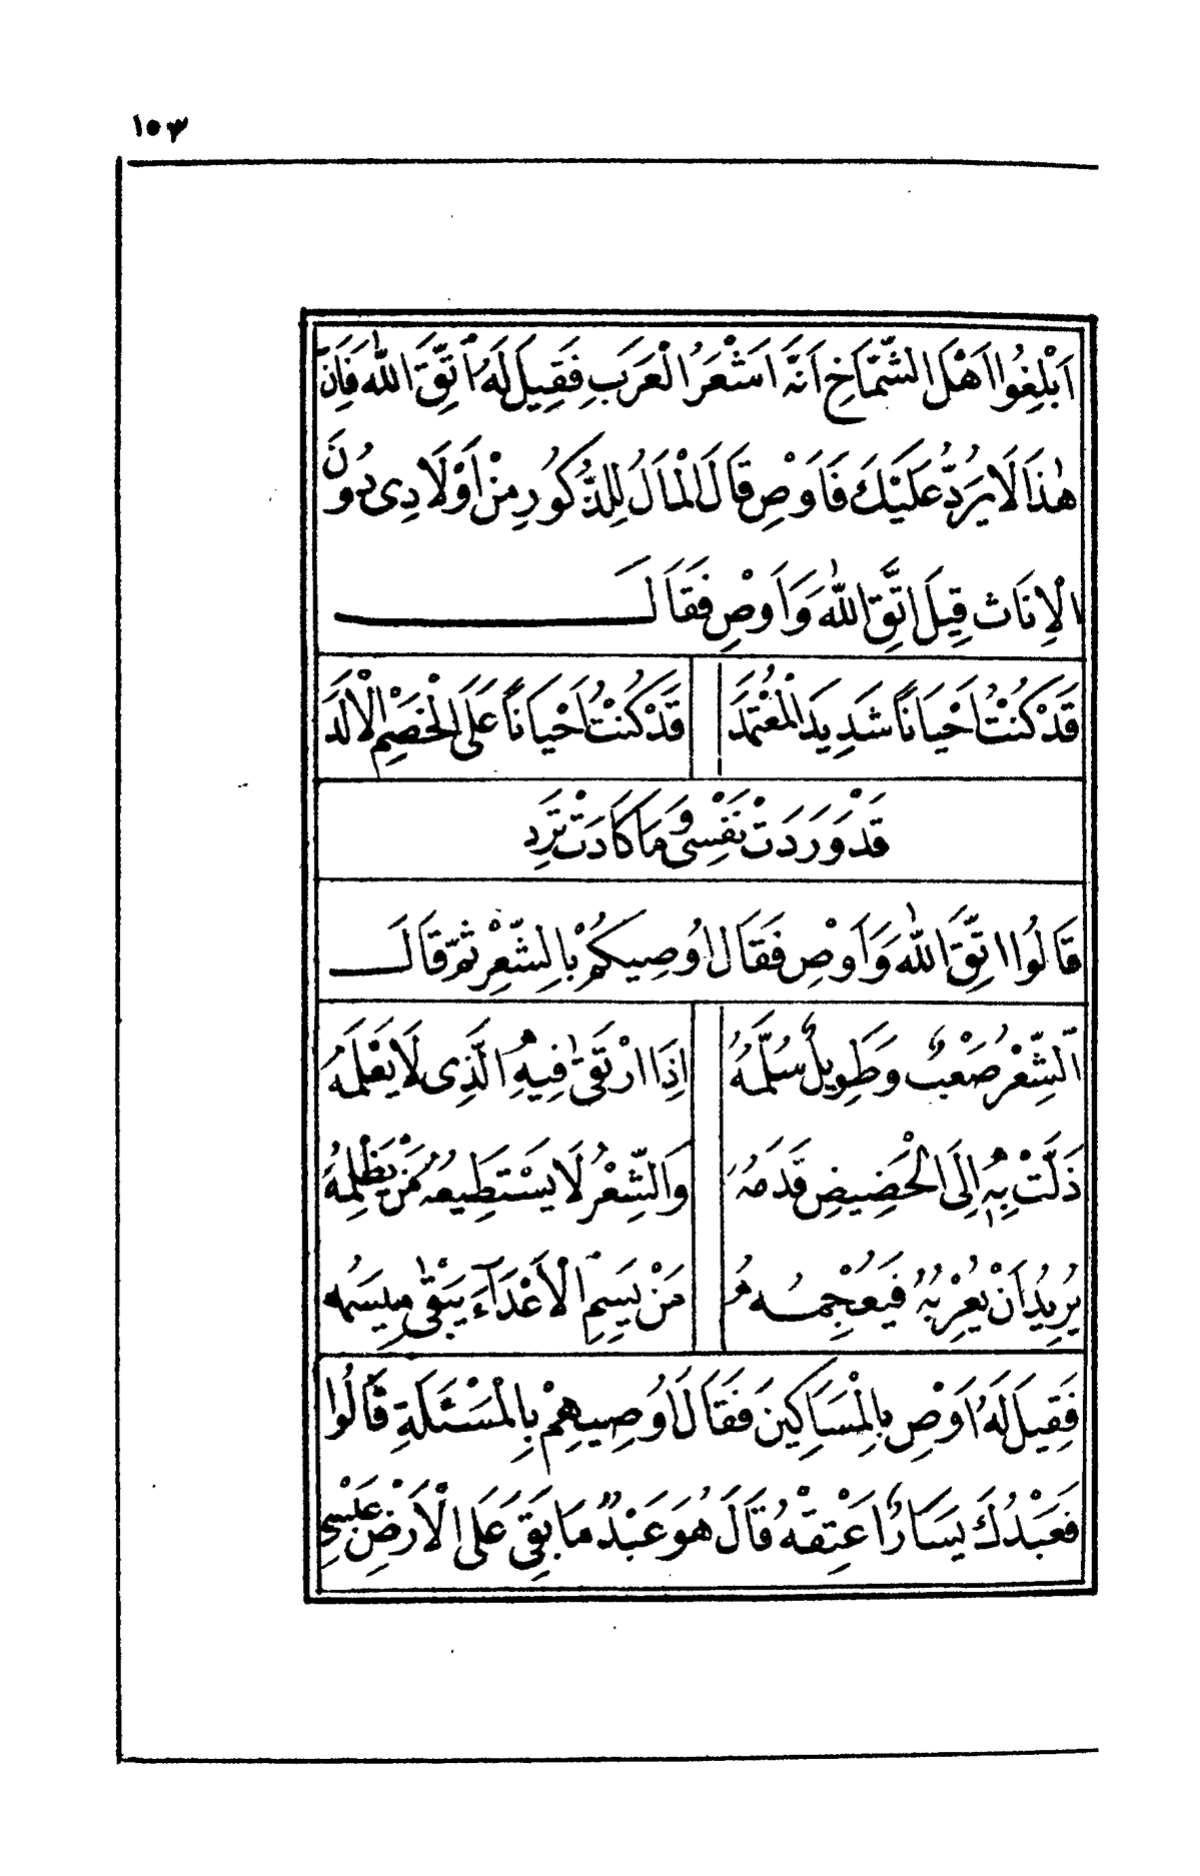 ١٥٣
اَبْلِغُوا اَهْلَ الشَّمَّاخِ اَنَّهُ اَشْعَرُ الْعَرَبِ فَقِيلَ لَهُ اتَّقِ اللّٰهَ فَاِنَّ
هٰذَا لَا يَرُدُّ عَلَيْكَ فَاَوْصِ قَالَ الْمَالُ لِلذُّكُورِ مِنْ اَوْلَادِى دُونَ
الْاِنَاثِ قِيلَ اتَّقِ اللّٰهَ وَاَوْصِ فَقَالَ
قَدْ كُنْتُ اَحْيَانًا شَدِيدَ الْمُعْتَمَدْ قَدْ كُنْتُ اَحْيَانًا عَلَى الْخَصْمِ الْاَلَدْ
قَدْ وَرَدَتْ نَفْسِى وَمَا كَادَتْ تَرِدْ
قَالُوا اتَّقِ اللّٰهَ وَاَوْصِ فَقَالَ اُوصِيكُمْ بِالشِّعْرِ ثُمَّ قَالَ
اَلشِّعْرُ صَعْبٌ وَطَوِيلٌ سُلَّمُهُ اِذَا ارْتَقٰى فِيهِ الَّذِى لَا يَعْلَمُهُ
ذَلَّتْ بِهِ اِلَى الْحَضِيضِ قَدَمُهُ وَالشِّعْرُ لَا يَسْتَطِيعُهُ مَنْ يَظْلِمُهُ
يُرِيدُ اَنْ يُعْرِبَهُ فَيُعْجِمُهُ مَنْ يَسِمِ الْاَعْدَآءَ يَبْقٰى مِيسَمُه
فَقِيلَ لَهُ اَوْصِ بِالْمَسَاكِينَ فَقَالَ اُوصِيهِمْ بِالْمَسْئَلَةِ قَالُوا
فَعَبْدُكَ يَسَارٌ اَعْتِقْهُ قَالَ هُوَ عَبْدٌ مَا بَقِىَ عَلَى الْاَرْضِ عَبْسِى